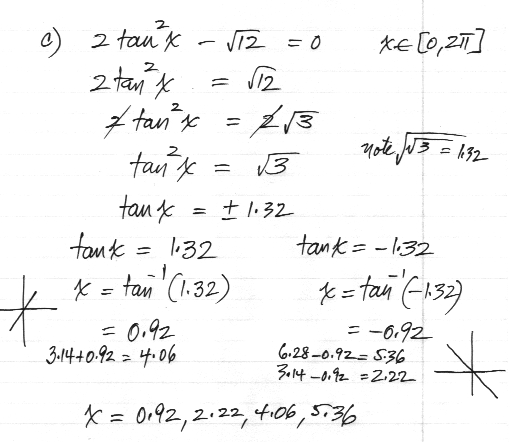 c) 2 tan²x - √12 = 0 x ∈ [0, 2π]
2 tan²x = √12
2 tan²x = 2√3
tan²x = √3 note √√3 = 1.32
tan x = ± 1.32
tan x = 1.32 tan x = -1.32
x = tan⁻¹(1.32) x = tan⁻¹(-1.32)
= 0.92 = -0.92
3.14 + 0.92 = 4.06 6.28 - 0.92 = 5.36
3.14 - 0.92 = 2.22
x = 0.92, 2.22, 4.06, 5.36